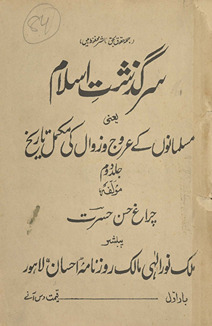 24
(جملہ حقوق بحق ناشر محفوظ ہیں)
سرگذشتِ اسلام
یعنی
مسلمانوں کے عروج و زوال کی مکمل تاریخ
جلد دوم
مؤلفہ
چراغ حسن حسرت
پبلشر
ملک نور الٰہی مالک روزنامہ احسان لاہور
بار اول
قیمت دس آنے